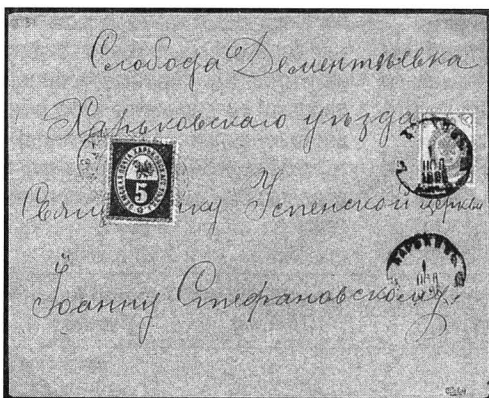 Слобода Дементьевка
Харьковскаго уѣзда
Успенской церкви
Іоанну Стефановскому
5
ХАРЬКОВЪ